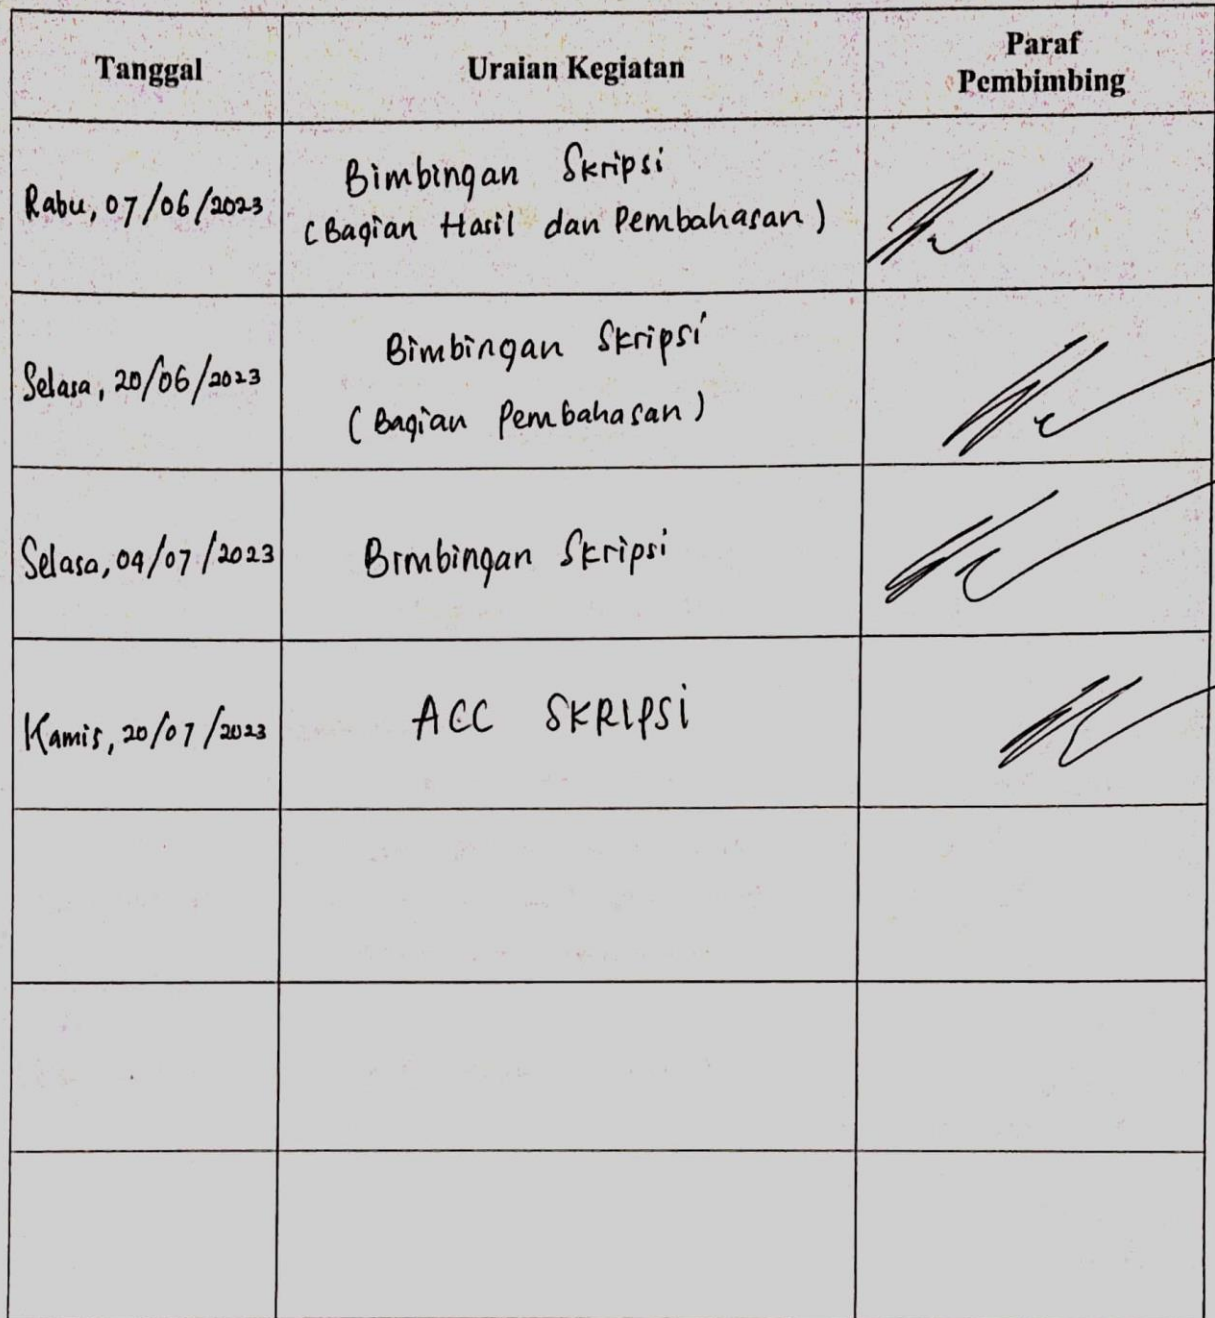 Tanggal
Uraian Kegiatan
Paraf
Pembimbing
Rabu, 07/06/2023
Bimbingan Skripsi
(Bagian Hasil dan Pembahasan)
Selasa, 20/06/2023
Bimbingan Skripsi
(Bagian Pembahasan)
Selasa, 04/07/2023
Bimbingan Skripsi
Kamis, 20/07/2023
ACC SKRIPSi